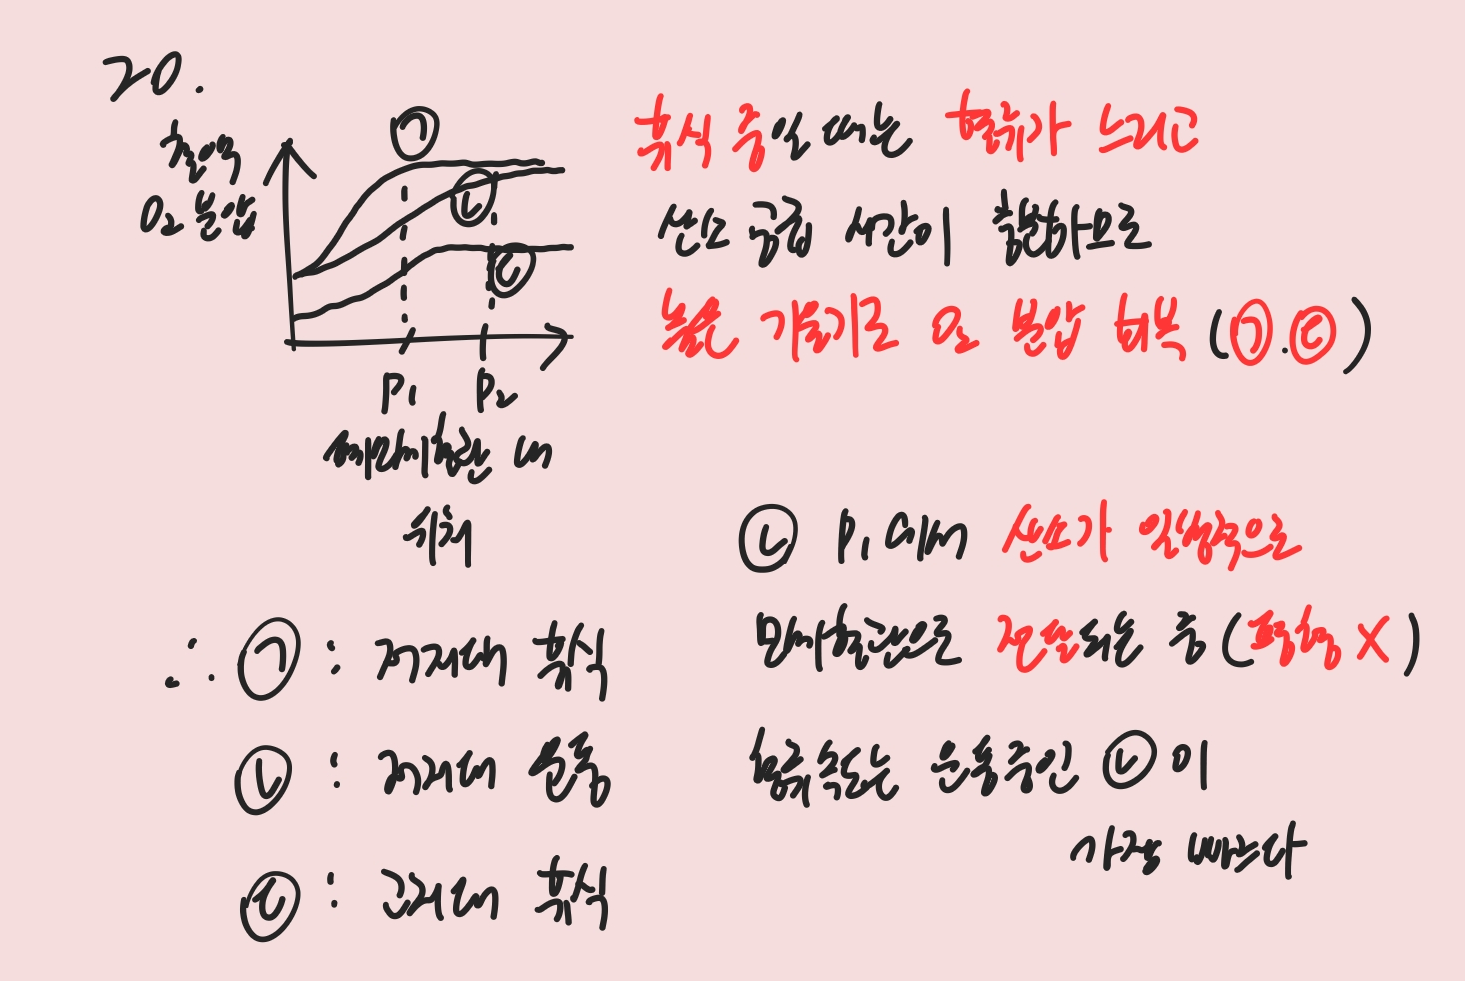 20.
혈액
O₂ 분압
㉠
㉡
㉢
P₁ P₂
폐모세혈관 내
위치
휴식 중일 때는 혈류가 느리고
산소 공급 시간이 충분하므로
높은 기울기로 O₂ 분압 회복 (㉠.㉢)
㉡ P₁에서 산소가 일방적으로
모세혈관으로 전달되는 중 (평형 X)
혈류 속도는 운동중인 ㉡이
가장 빠르다
∴ ㉠ : 저지대 휴식
㉡ : 저지대 운동
㉢ : 고지대 휴식